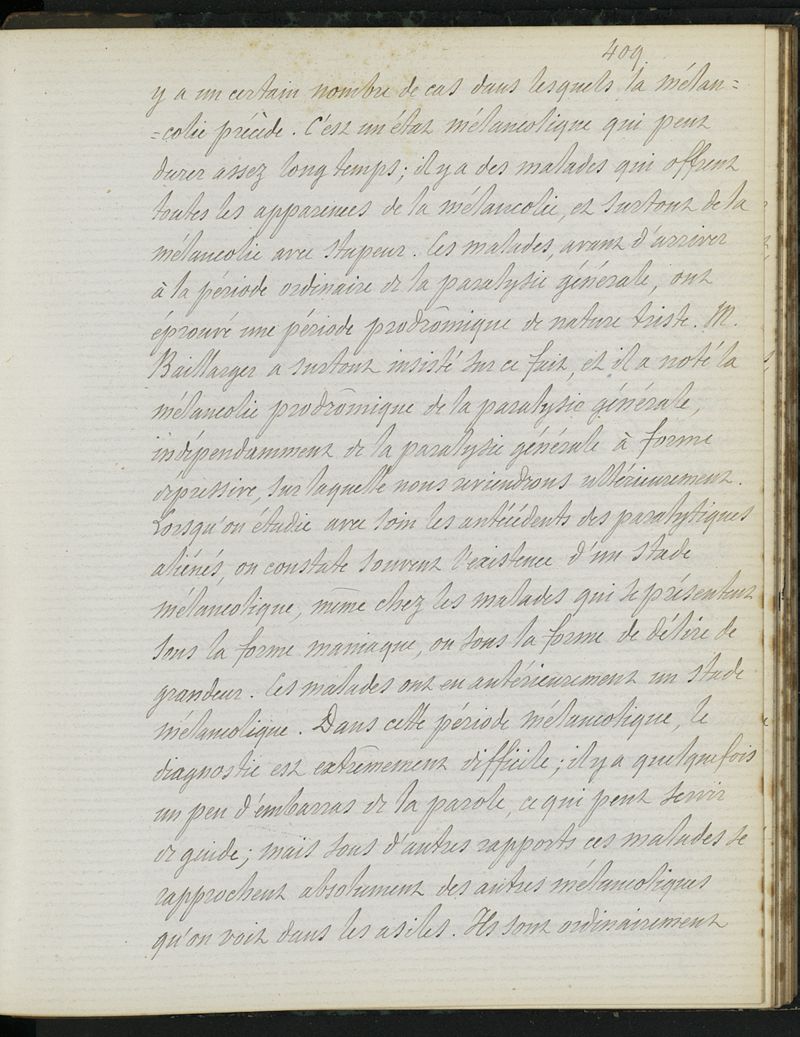 409.
y a un certain nombre de cas dans lesquels la mélan=
=colie précède. C'est un état mélancolique qui peut
durer assez long temps; il y a des malades qui offrent
toutes les apparences de la mélancolie, et surtout de la
mélancolie avec stupeur. Ces malades, avant d'arriver
à la période ordinaire de la paralysie générale, ont
éprouvé une période prodrômique de nature triste. M.
Baillarger a surtout insisté sur ce fait, et il a noté la
mélancolie prodrômique de la paralysie générale,
indépendamment de la paralysie générale à forme
dépressive, sur laquelle nous reviendrons ultérieurement.
Lorsqu'on étudie avec soin les antécédents des paralytiques
aliénés, on constate souvent l'existence d'un stade
mélancolique, même chez les malades qui se présentent
sous la forme maniaque, ou sous la forme de délire de
grandeur. Ces malades ont eu antérieurement un stade
mélancolique. Dans cette période mélancolique, le
diagnostic est extrêmement difficile; il y a quelquefois
un peu d'embarras de la parole, ce qui peut servir
de guide; mais sous d'autres rapports ces malades se
rapprochent absolument des autres mélancoliques
qu'on voit dans les asiles. Ils sont ordinairement